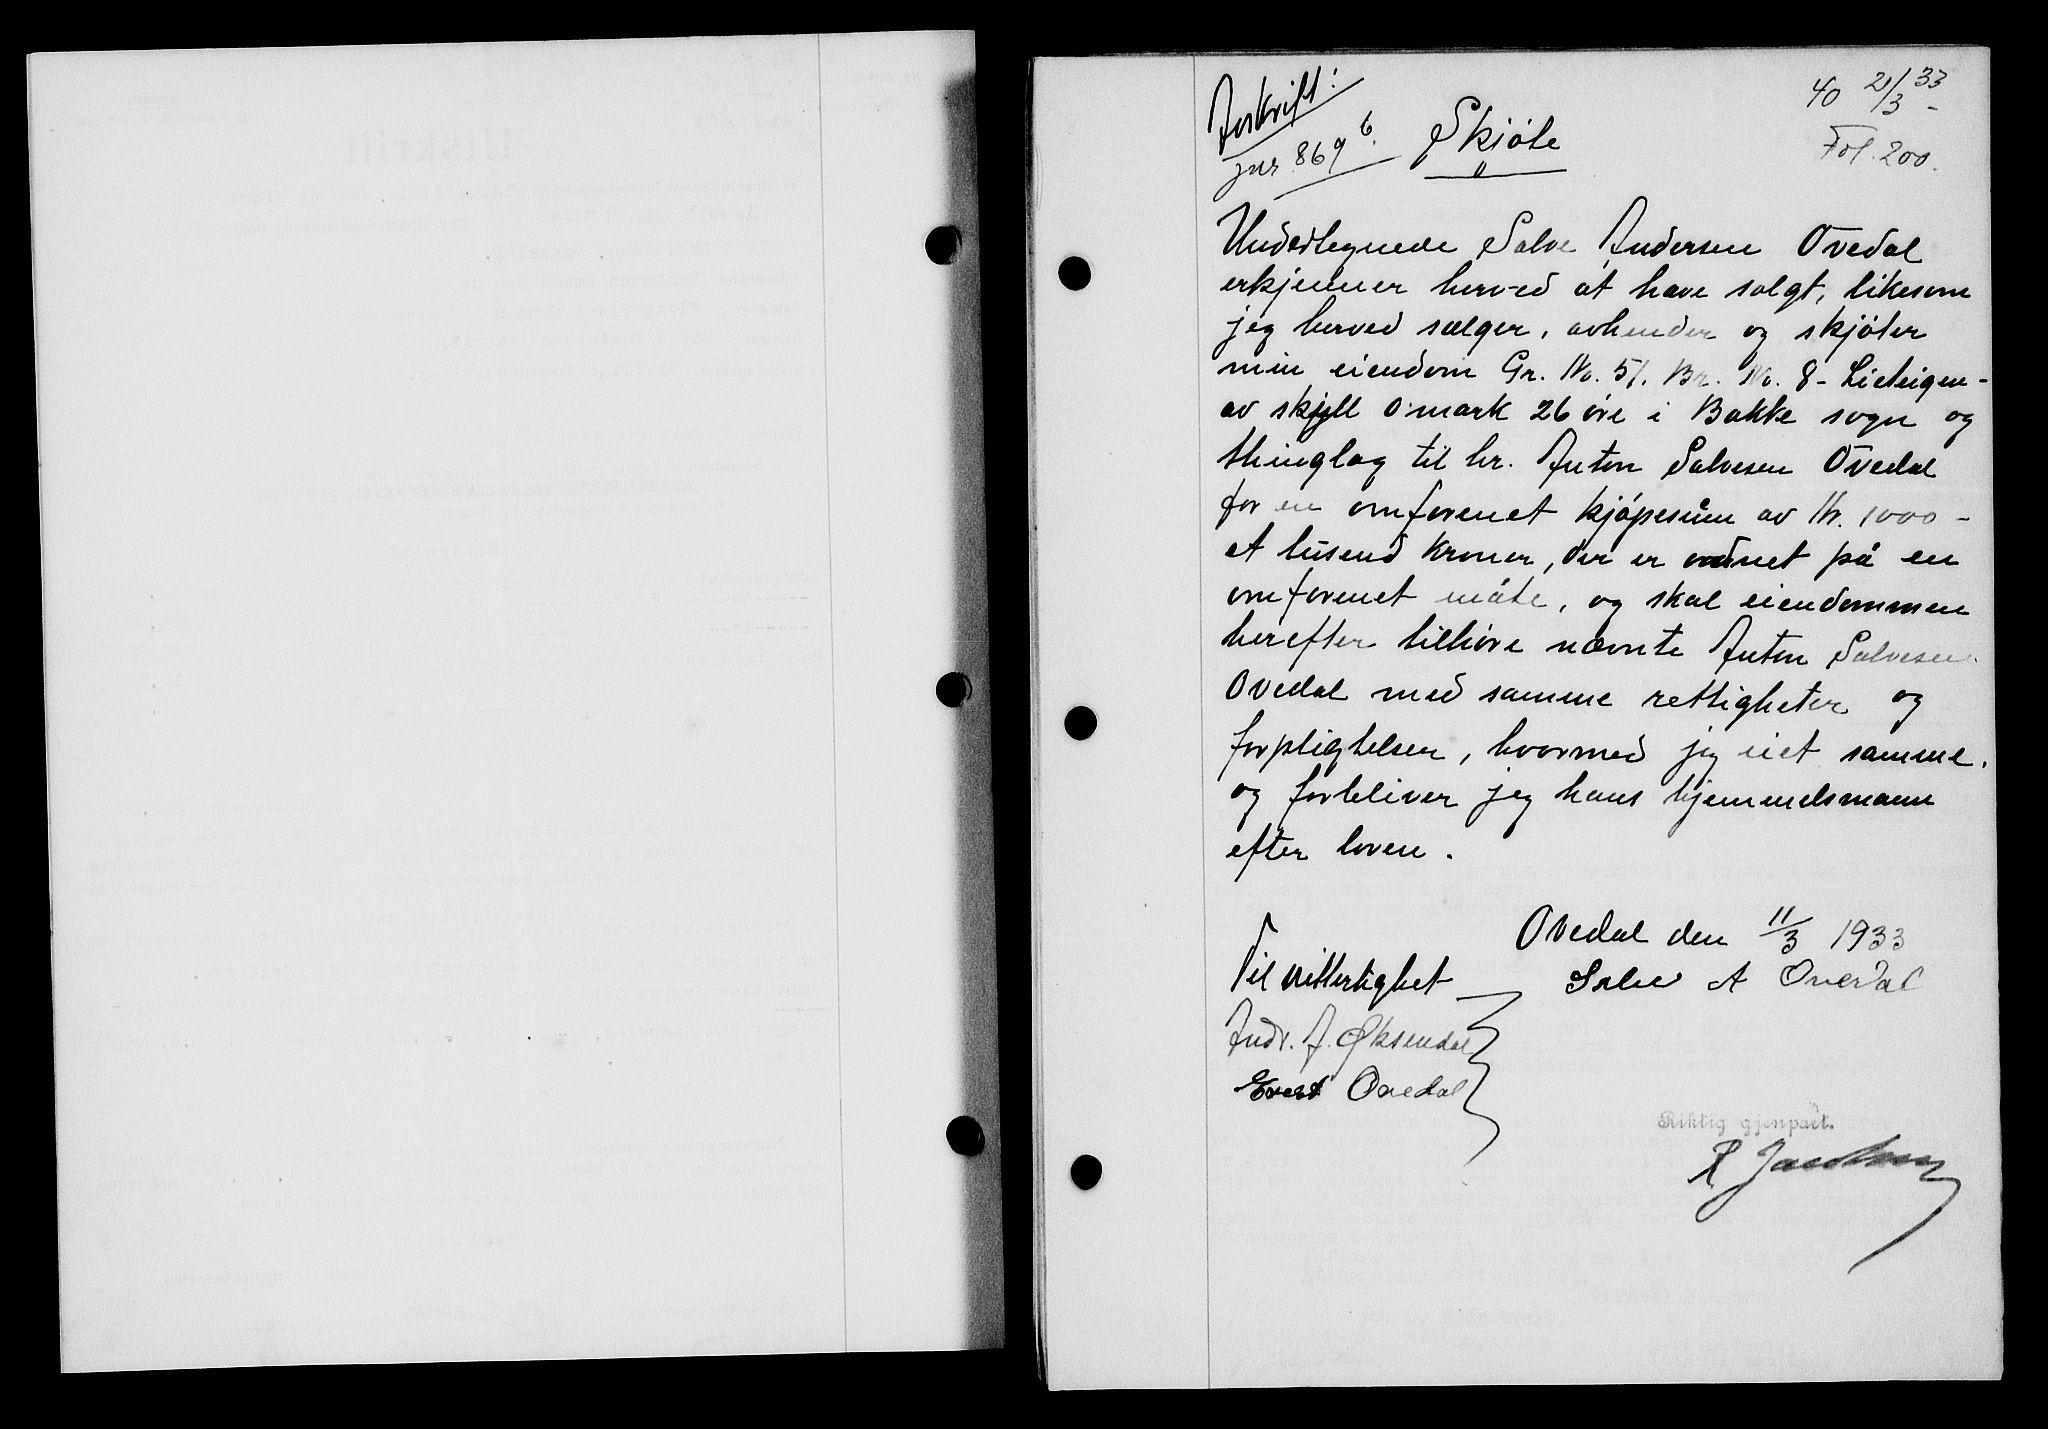 Avskrift:
jnr 869 6.
Skjöte
40 21/3 33
Fol. 200.
Undertegnede Salve Andersen Ovedal
erkjenner herved at have solgt, likesom
jeg herved sælger, avhender og skjöter
min eiendom Gr. No. 51. Br. No. 8 - Lieteigen -
av skyll 0 mark 26 öre i Bakke sogn og
thinglag til hr. Anton Salvesen Ovedal
for en omforenet kjöpesum av Kr. 1000 -
et tusend kroner, der er ordnet på en
omforenet måte, og skal eiendommen
herefter tilhöre nævnte Anton Salvesen
Ovedal med samme rettigheter og
forpligtelser, hvormed jeg eiet samme,
og forbliver jeg hans hjemmelsmann
efter loven.
Ovedal den 11/3 1933
Til vitterlighet
Salve A Ovedal
Andr. J. Øksendal
Evert Ovedal
Riktig gjenpart.
R Jacobsen